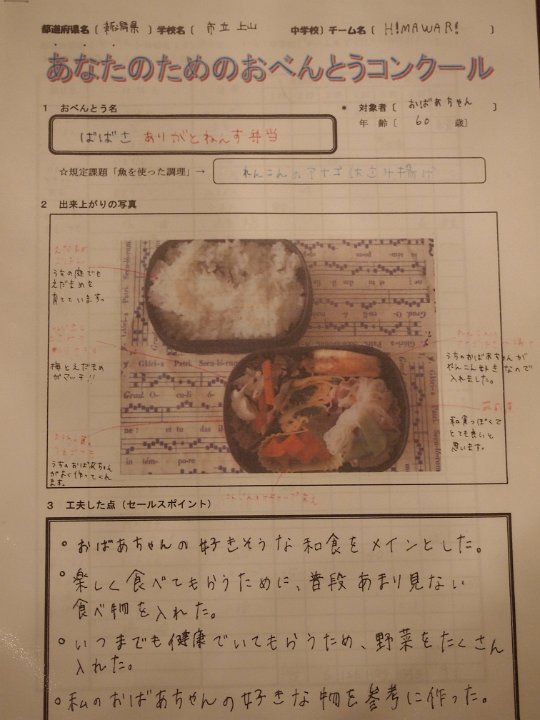 都道府県名 [ 新潟県 ] 学校名 [ 市立 上山 中学校) チーム名 [ H!MAWAR! ]
あなたのためのおべんとうコンクール
1 おべんとう名
* 対象者 [ おばあちゃん
年 齢 [ 60 歳]
ばばさ ありがとねんす弁当
☆規定課題「魚を使った調理」→ れんこんのアナゴはさみ揚げ
2 出来上がりの写真
うちの庭でも
えだまめを
育てています。
梅とえだまめ
がマッチ!!
うちのおばあちゃん
がよく作ってくれ
ます。
うちのおばあちゃんが
れんこん好きなので
入れました。
和食っぽくて
とても良いと
思います。
3 工夫した点（セールスポイント）
○ おばあちゃんの好きそうな和食をメインとした。
○ 楽しく食べてもらうために、普段あまり見ない
食べ物を入れた。
○ いつまでも健康でいてもらうため、野菜をたくさん
入れた。
○ 私のおばあちゃんの好きな物を参考に作った。